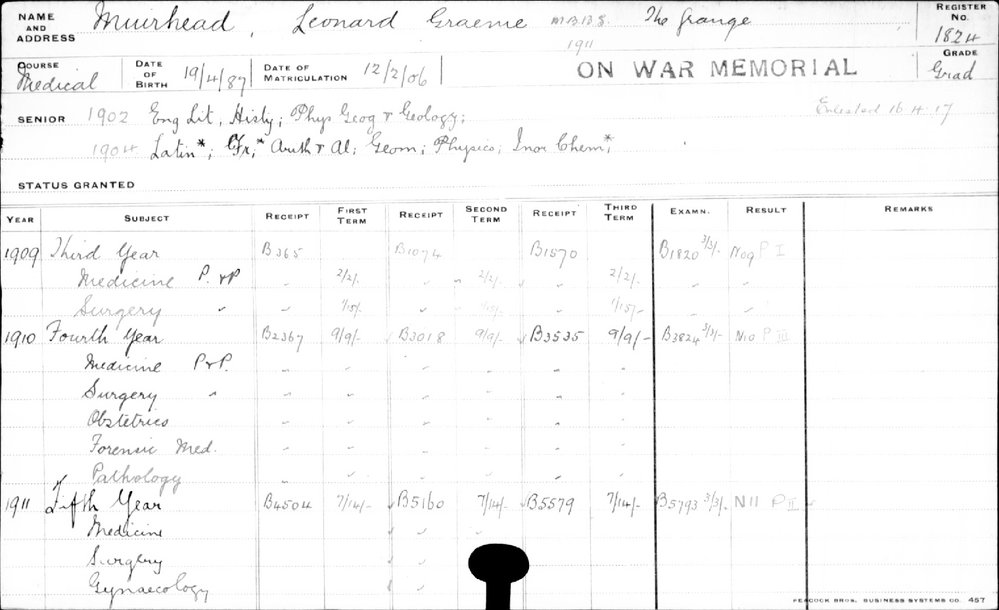 NAME AND ADDRESS Muirhead, Leonard Graeme M.B.B.S. 1911 The Grange REGISTER No. 1824
COURSE Medical DATE OF BIRTH 19/4/87 DATE OF MATRICULATION 12/2/06 ON WAR MEMORIAL GRADE Grad
SENIOR 1902 Eng Lit, Histy; Phys Geog & Geology; Enlisted 16 4 17
1904 Latin*; Fr;* Arith & Al; Geom; Physics; Inor Chem*;
STATUS GRANTED
YEAR SUBJECT RECEIPT FIRST TERM RECEIPT SECOND TERM RECEIPT THIRD TERM EXAMN. RESULT REMARKS
1909 Third Year B365 B1074 B1570 B1820 3/3/- No9 P I
Medicine P. & P " 2/2/- " 2/2/- " 2/2/- " "
Surgery " " 1/15/- " 1/15/- " 1/15/- " "
1910 Fourth Year B2367 9/9/- B3018 9/9/- B3535 9/9/- B3824 3/3/- N10 P III
Medicine P & P. " " " " " "
Surgery " " " " " " "
Obstetrics " " " " " "
Forensic Med. " " " " " "
Pathology " " " "
1911 Fifth Year B4504 7/14/- B5160 7/14/- B5579 7/14/- B5793 3/3/- N11 P II
Medicine "
Surgery "
Gynaecology "
PEACOCK BROS. BUSINESS SYSTEMS CO. 457